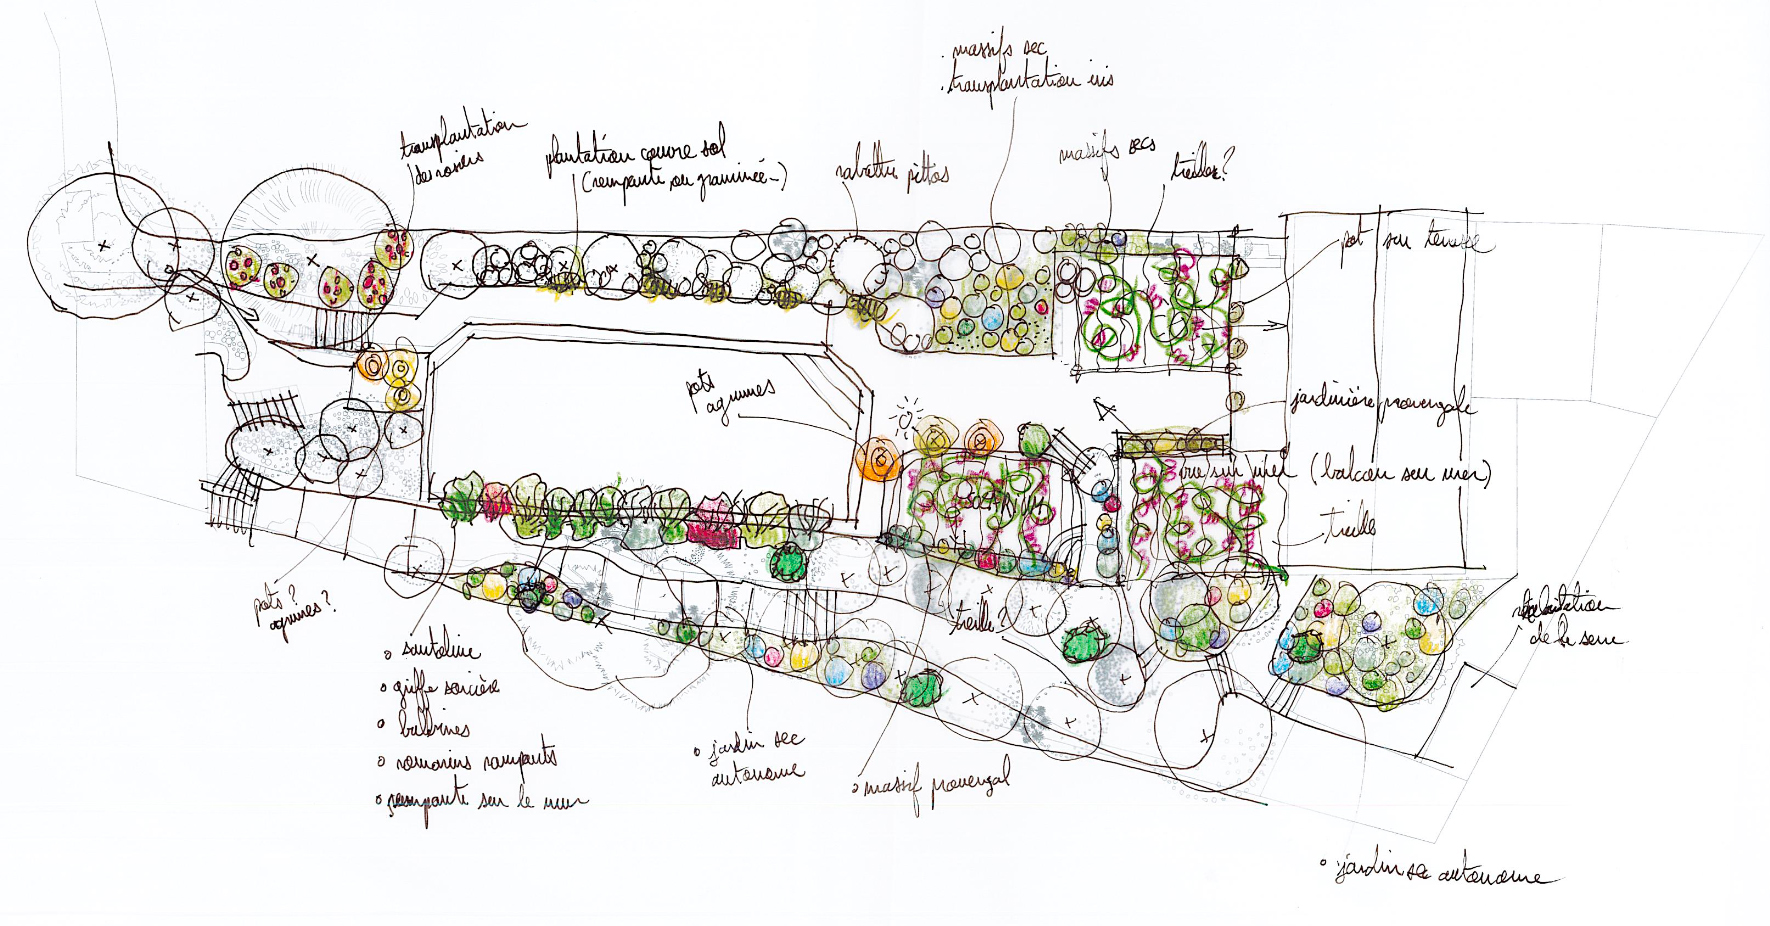 massifs sec
transplantation iris
transplantation
des rosiers
plantation couvre sol
(rampante ou graminée-)
rabattre pittos
massifs secs
treilles?
pot sur terrasse
pots
agrumes
jardinière provençale
vue sur mer (balcon sur mer)
treille
pots?
agrumes?
treille?
de la serre
santoline
griffe sorcière
bulbines
romarins rampants
rampante sur le mur
jardin sec
autonome
massif provençal
jardin sec autonome